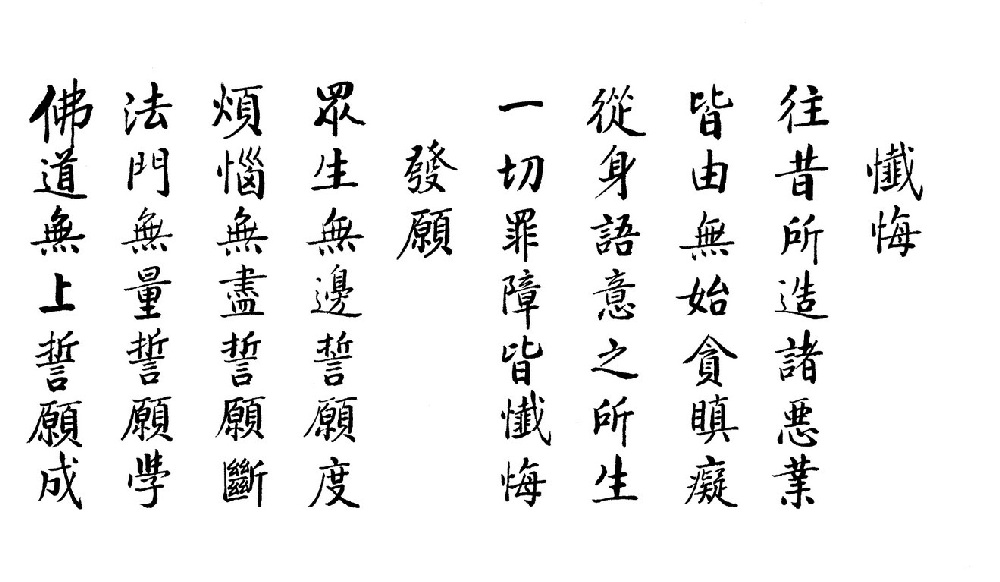 懺悔
往昔所造諸惡業
皆由無始貪瞋癡
從身語意之所生
一切罪障皆懺悔
發願
眾生無邊誓願度
煩惱無盡誓願斷
法門無量誓願學
佛道無上誓願成